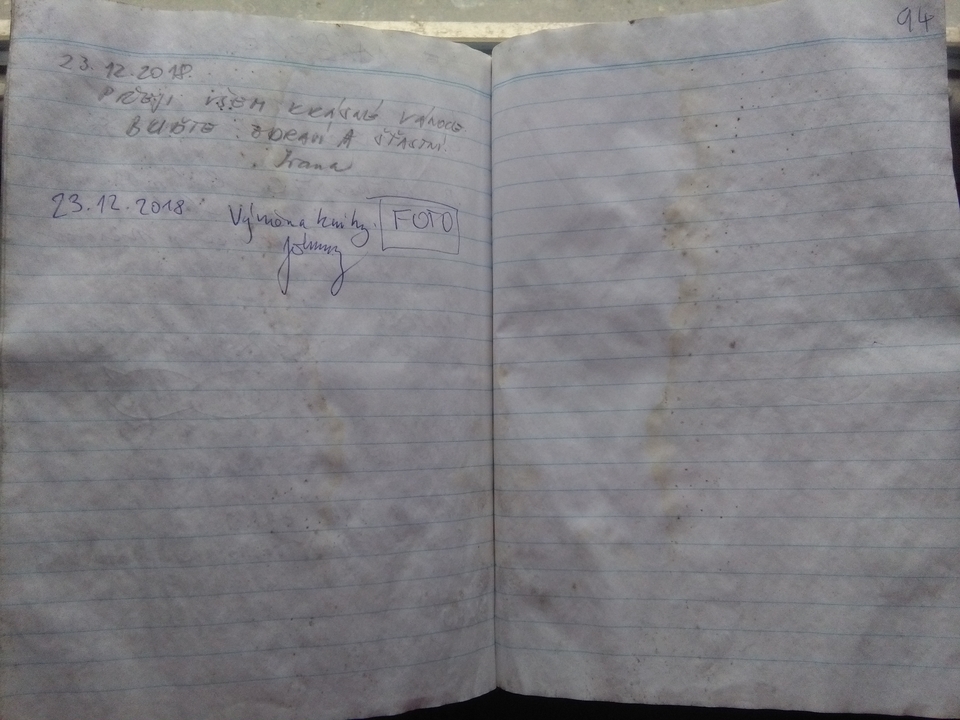 23.12.2018.
PŘEJI VŠEM KRÁSNÉ VÁNOCE
BUĎTE ZDRAVÍ A ŠŤASTNÍ.
Ivana
23.12.2018. Výměna knihy. FOTO
Johnny
94